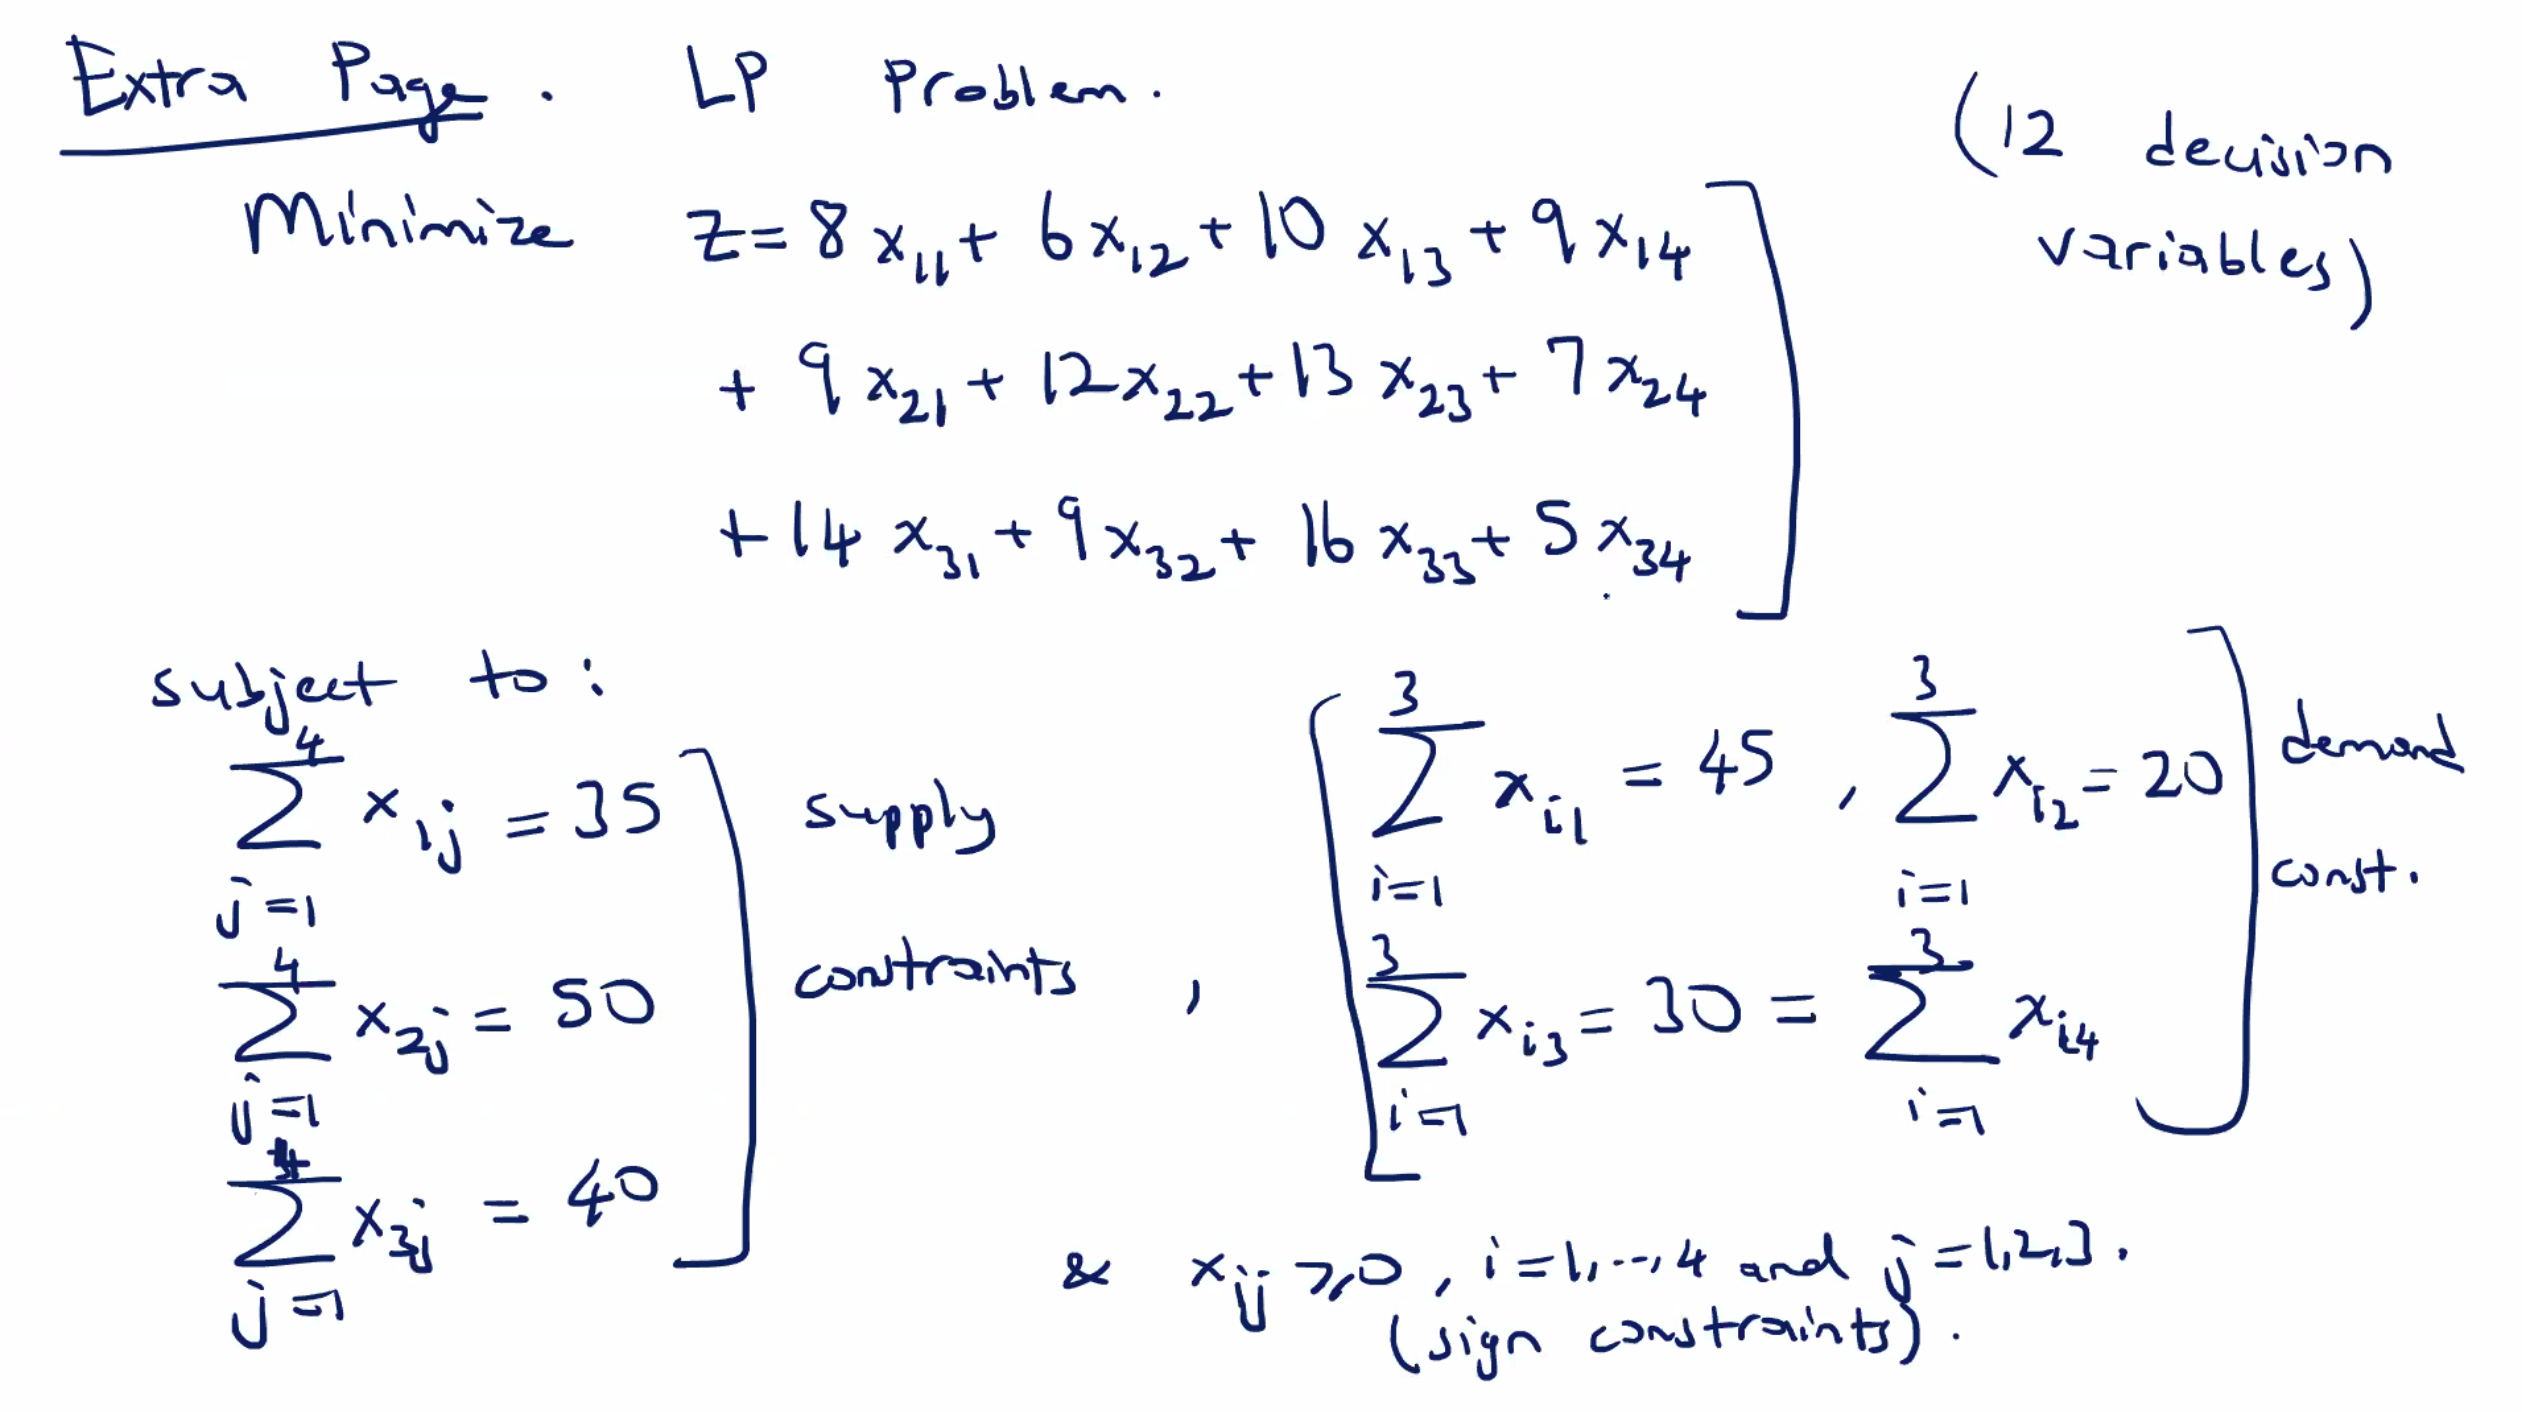 Extra Page. LP Problem.
(12 decision variables)
Minimize z = 8x₁₁ + 6x₁₂ + 10x₁₃ + 9x₁₄
+ 9x₂₁ + 12x₂₂ + 13x₂₃ + 7x₂₄
+ 14x₃₁ + 9x₃₂ + 16x₃₃ + 5x₃₄
subject to:
\sum_{j=1}^{4} x_{1j} = 35
\sum_{j=1}^{4} x_{2j} = 50
\sum_{j=1}^{4} x_{3j} = 40
supply
constraints ,
\sum_{i=1}^{3} x_{i1} = 45 , \sum_{i=1}^{3} x_{i2} = 20
\sum_{i=1}^{3} x_{i3} = 30 = \sum_{i=1}^{3} x_{i4}
demand
const.
& x_{ij} ⩾ 0 , i = 1, ..., 4 and j = 1, 2, 3.
(sign constraints).